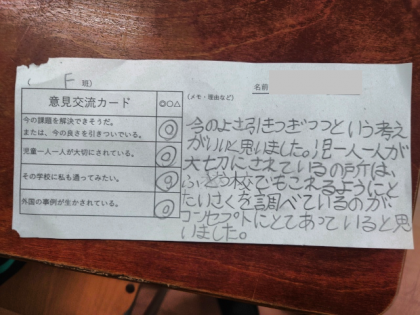 ( F 班)
名前
意見交流カード ◎○△
(メモ・理由など)
今の課題を解決できそうだ。
または、今の良さを引きついでいる。 ◎
児童一人一人が大切にされている。 ◎
その学校に私も通ってみたい。 ◎
外国の事例が生かされている。 ◎
今のよさ引きつぎつつという考え
がいいと思いました。児一人一人が
大切にされているの所は、
ふとう校でもこえるようにと
たいさくを調べているのが
コンセプトにとてあっていると思
いました。